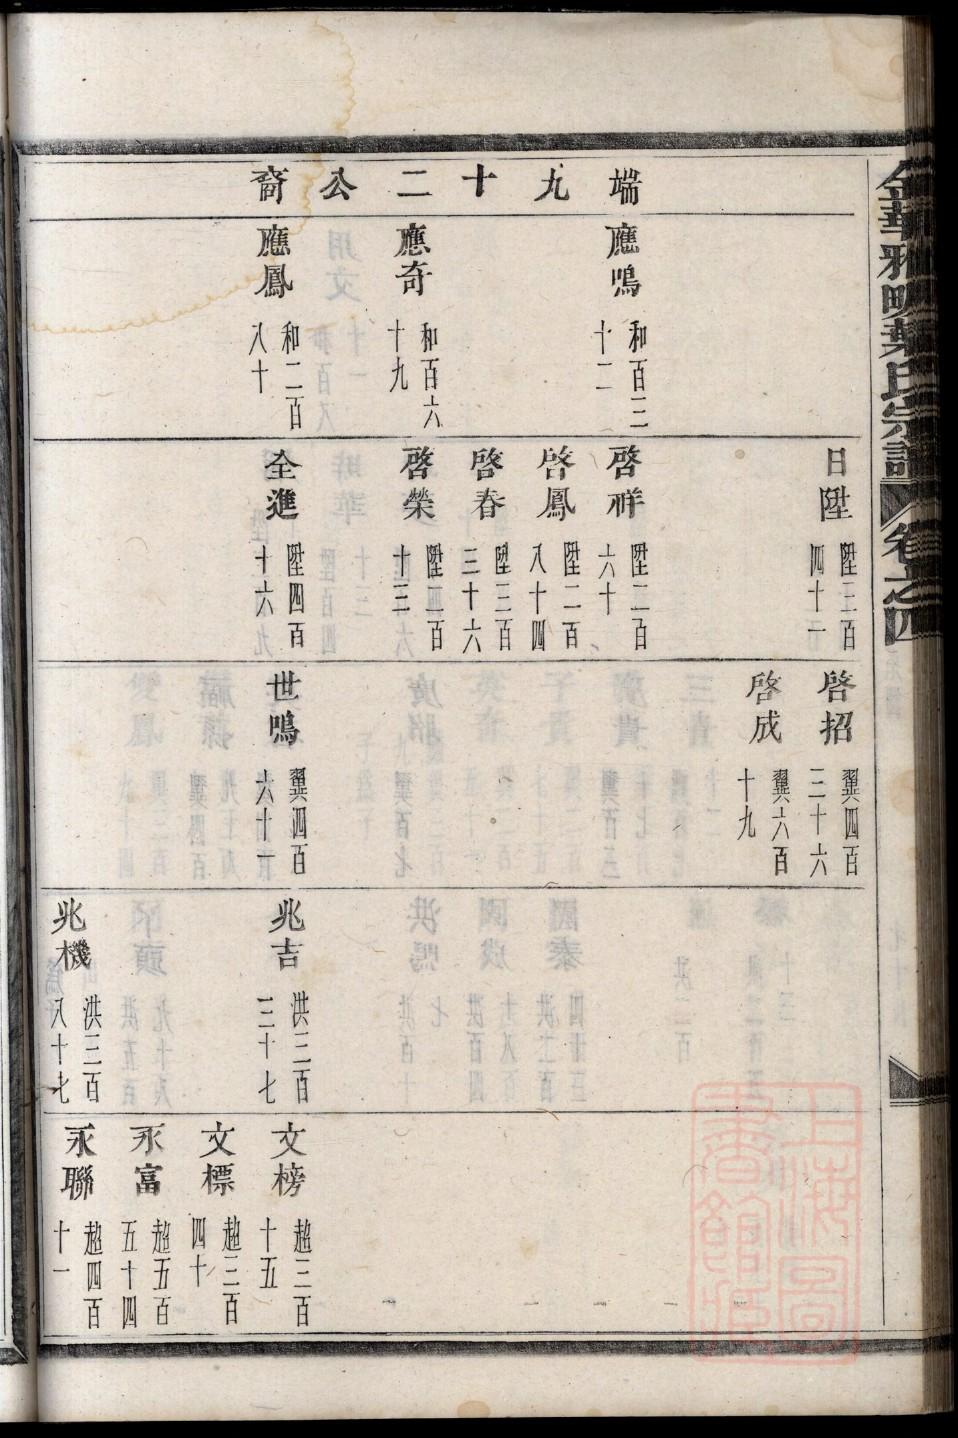 金華雅畈葉氏宗譜 卷之四
端九十二公裔
應鳴 和百三十二
應奇 和百六十九
應鳳 和二百八十
日陞 陞三百四十一
啓祥 陞二百六十
啓鳳 陞二百八十四
啓春 陞三百三十六
啓榮 陞百十三
全進 陞四百十六
啓招 翼四百三十六
啓成 翼六百十九
世鳴 翼四百六十一
兆吉 洪三百三十七
兆機 洪三百八十七
文榜 超三百十五
文標 超三百四十
永富 超五百五十四
永聯 超四百十一
上海圖書館藏